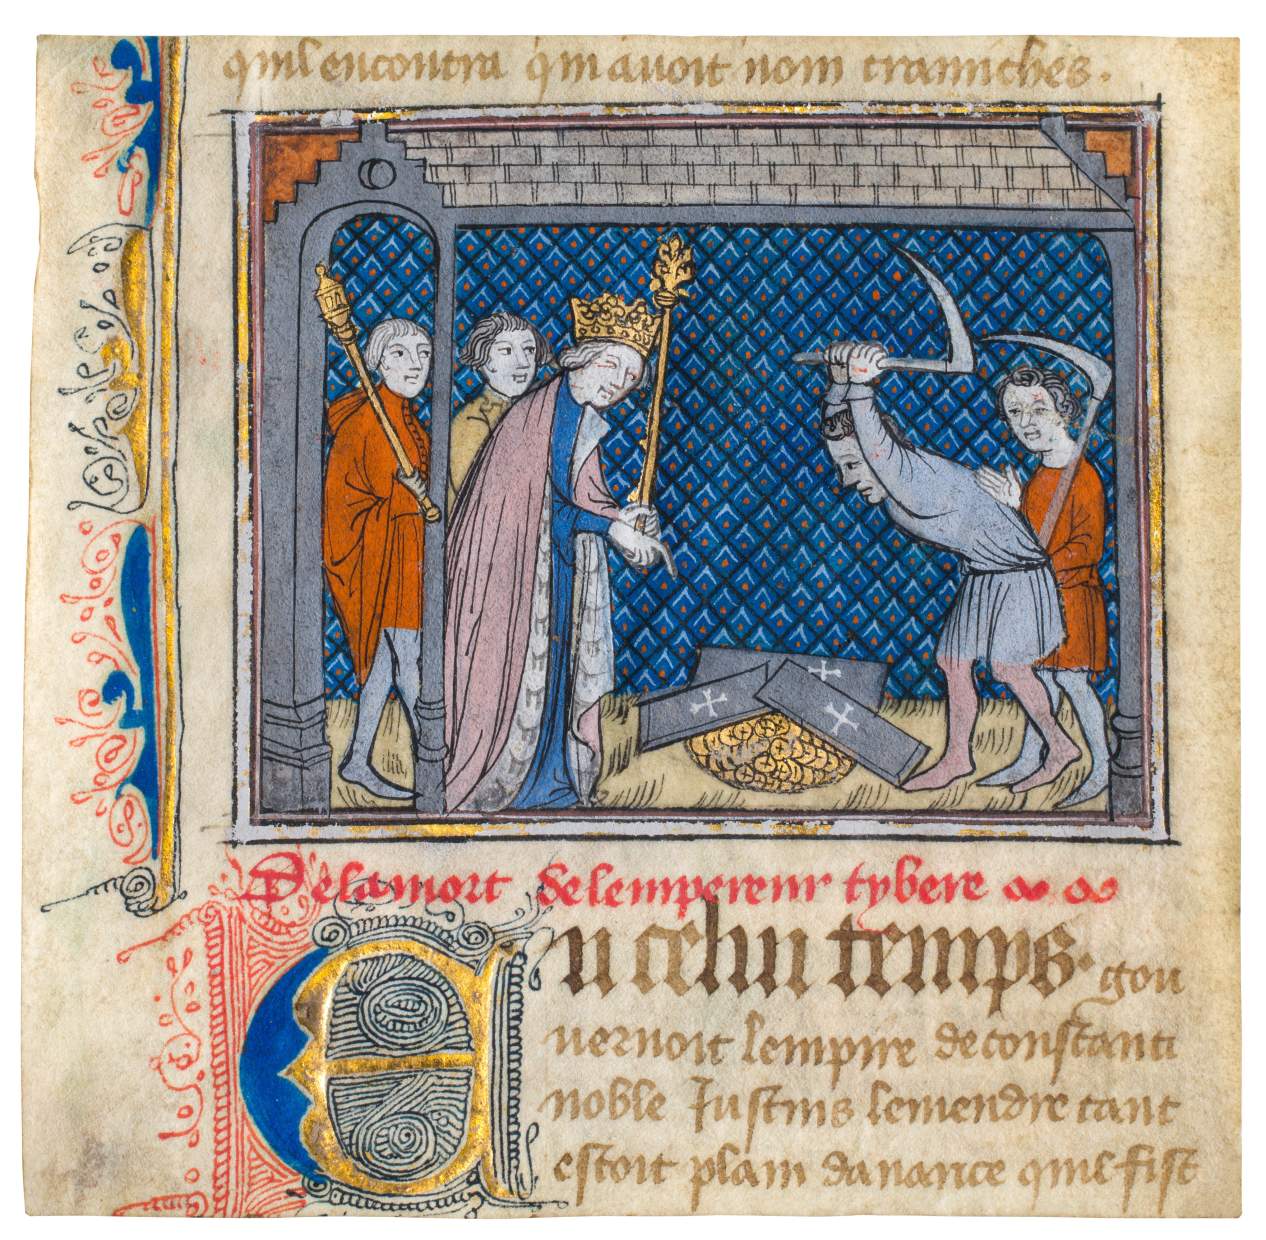 quil encontra qui auoit nom tranniches.
De la mort de lempereur tybere
En celui temps. gou
uernoit lempire de constanti
noble Justins le mendre tant
estoit plain dauarice quil fist